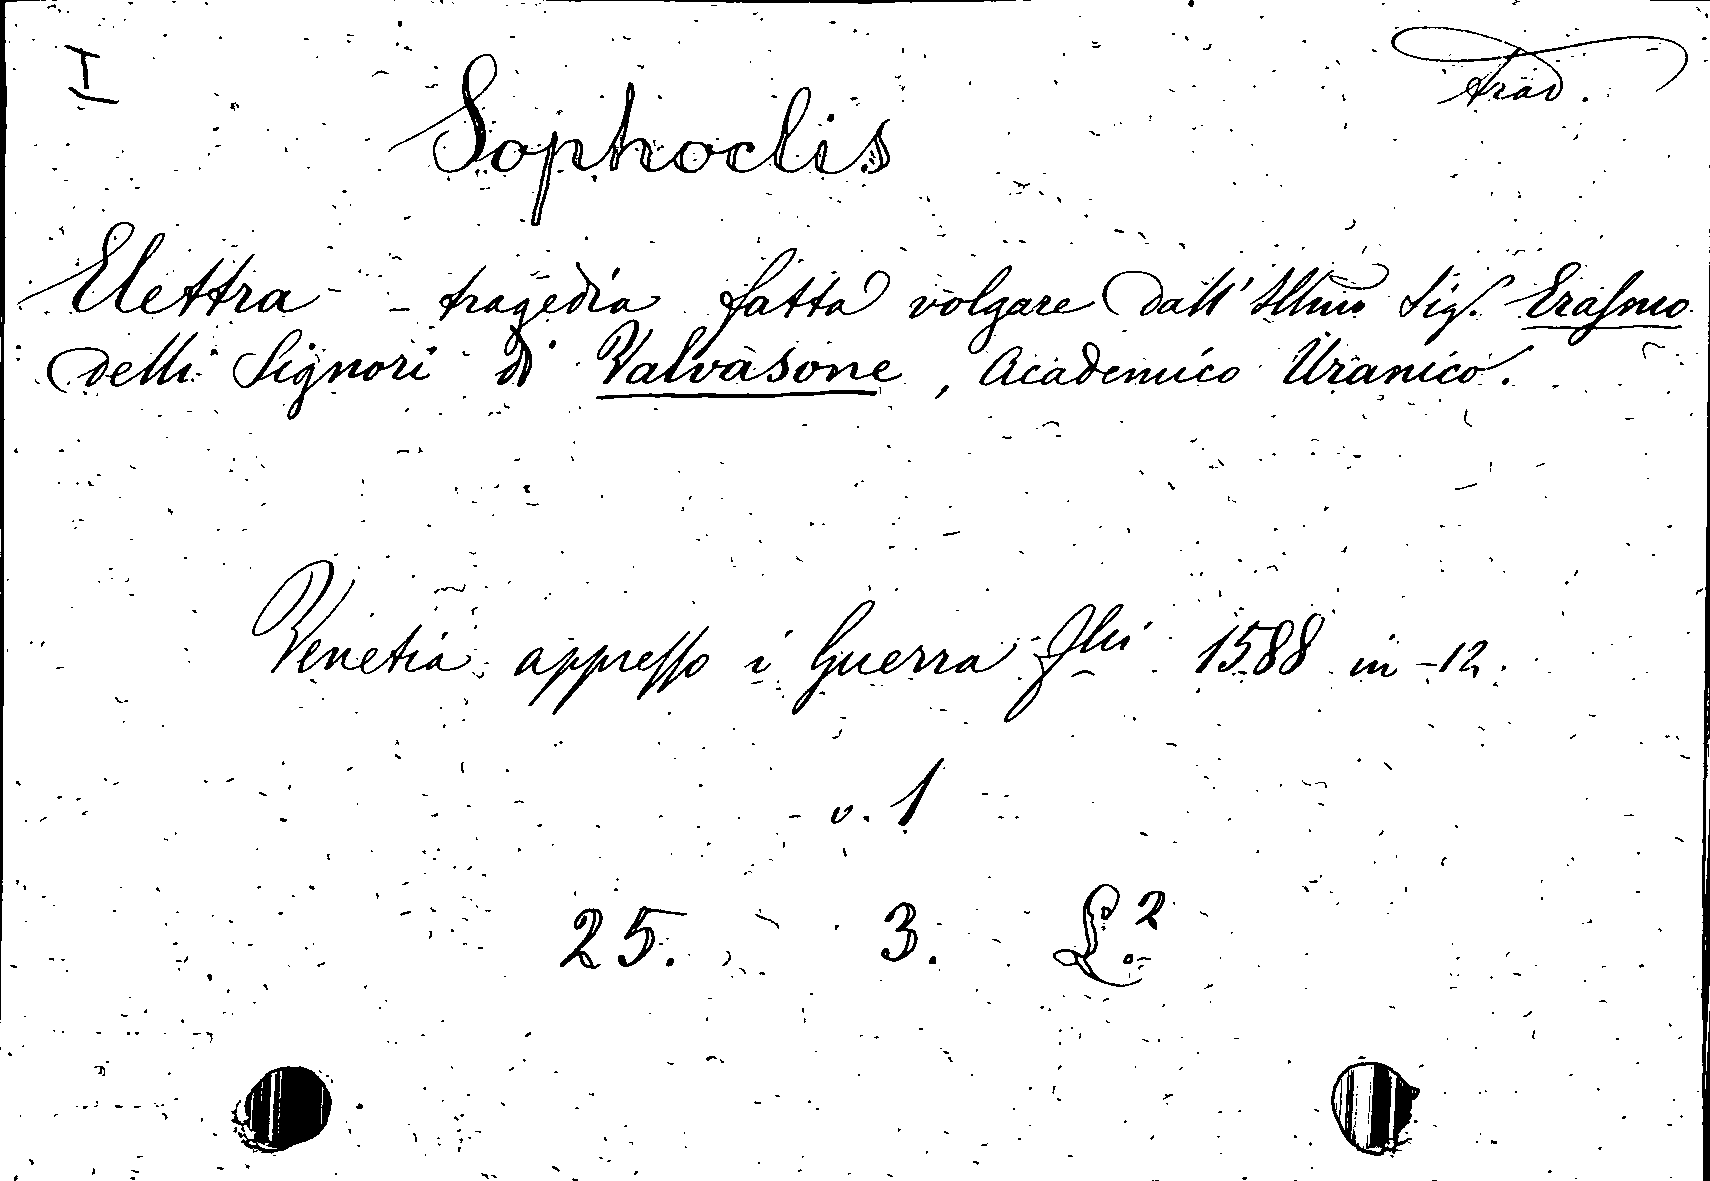 I
Trad.
Sophoclis
Elettra - tragedia fatta volgare dall' Illmo Sig. Erasmo
delli Signori di Valvasone, Academico Uranico.
Venetia appresso i Guerra flli 1588 in-12.
v. 1
25. 3. L.2